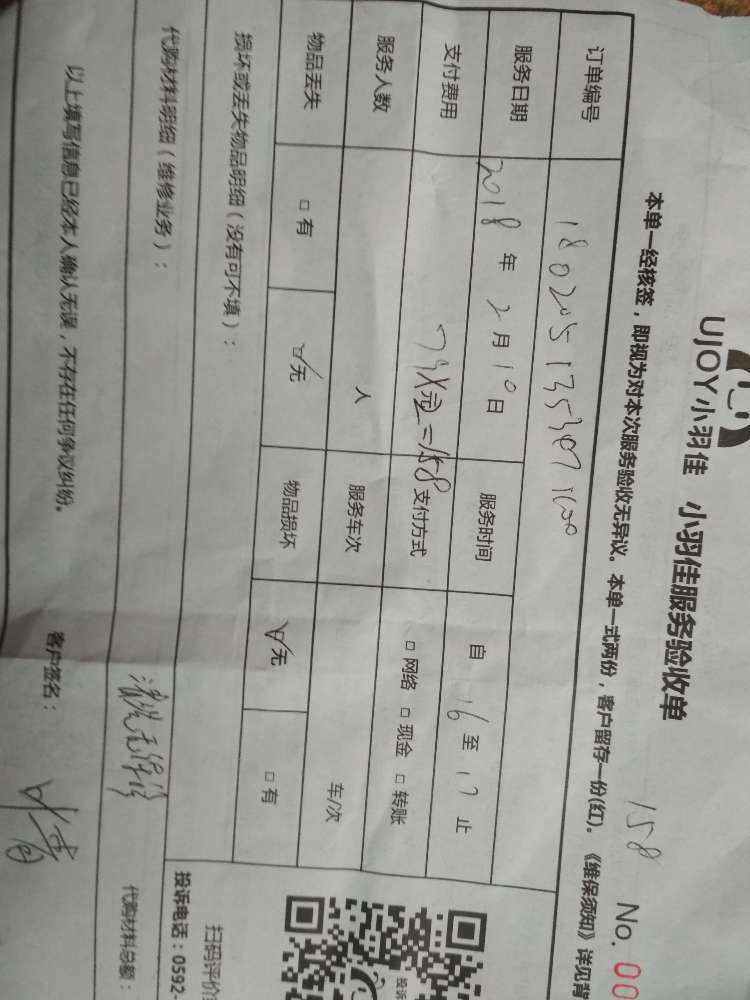 UJOY小羽佳 小羽佳服务验收单
158 No. 00
本单一经核签，即视为对本次服务验收无异议。本单一式两份，客户留存一份(红)。《维保须知》详见背
订单编号
服务日期 2018 年 2 月 10 日 服务时间 自 16 至 17 止
支付费用 =158 支付方式 □ 网络 □ 现金 □ 转账
服务人数 人 服务车次 车/次
物品丢失 □ 有 ☑ 无 物品损坏 ☑ 无 □ 有
损坏或丢失物品明细（没有可不填）：
代购材料明细（维修业务）：
清洗无保修
代购材料总额：
以上填写信息已经本人确认无误，不存在任何争议纠纷。 客户签名：
投诉
扫码评价
投诉电话：0592-